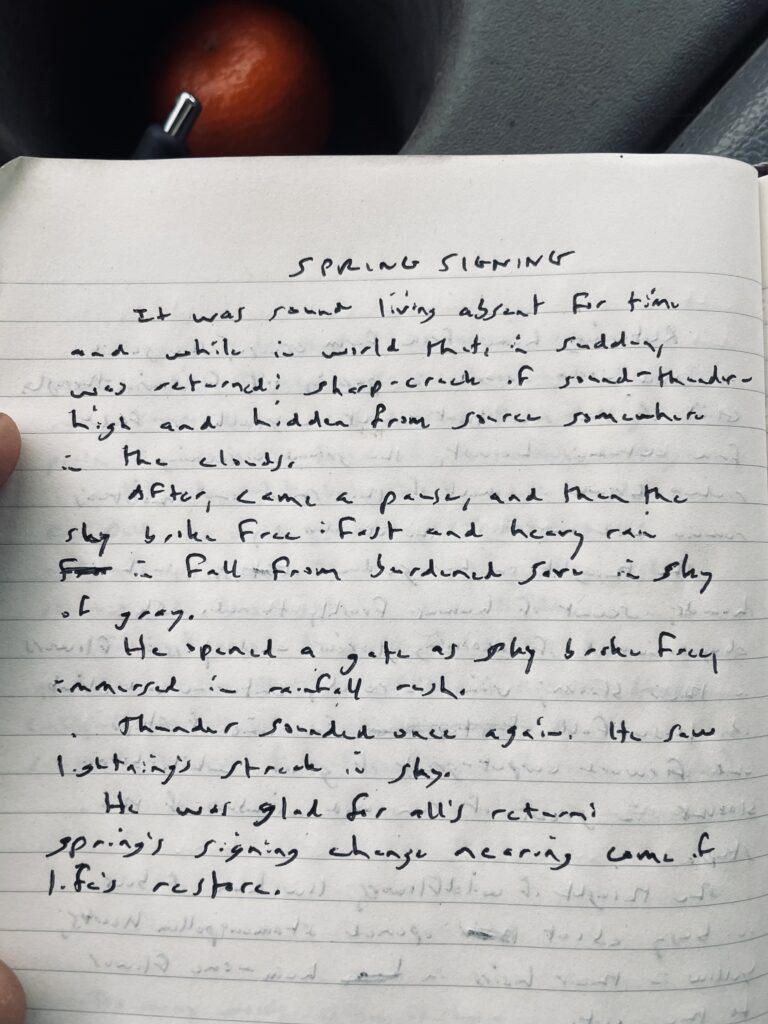 SPRING SIGNING
It was sound living absent for time
and while in world that, in sudden,
was returned: sharp-crack of sound-thunder-
high and hidden from source somewhere
in the clouds.
After, came a pause, and then the
sky broke free: fast and heavy rain
in fall from burdened in sky
of gray.
He opened a gate as sky broke free,
immersed in rainfall rush.
Thunder sounded once again. He saw
lightning's streak in sky.
He was glad for all's return:
spring's signing change nearing come of
life's restore.